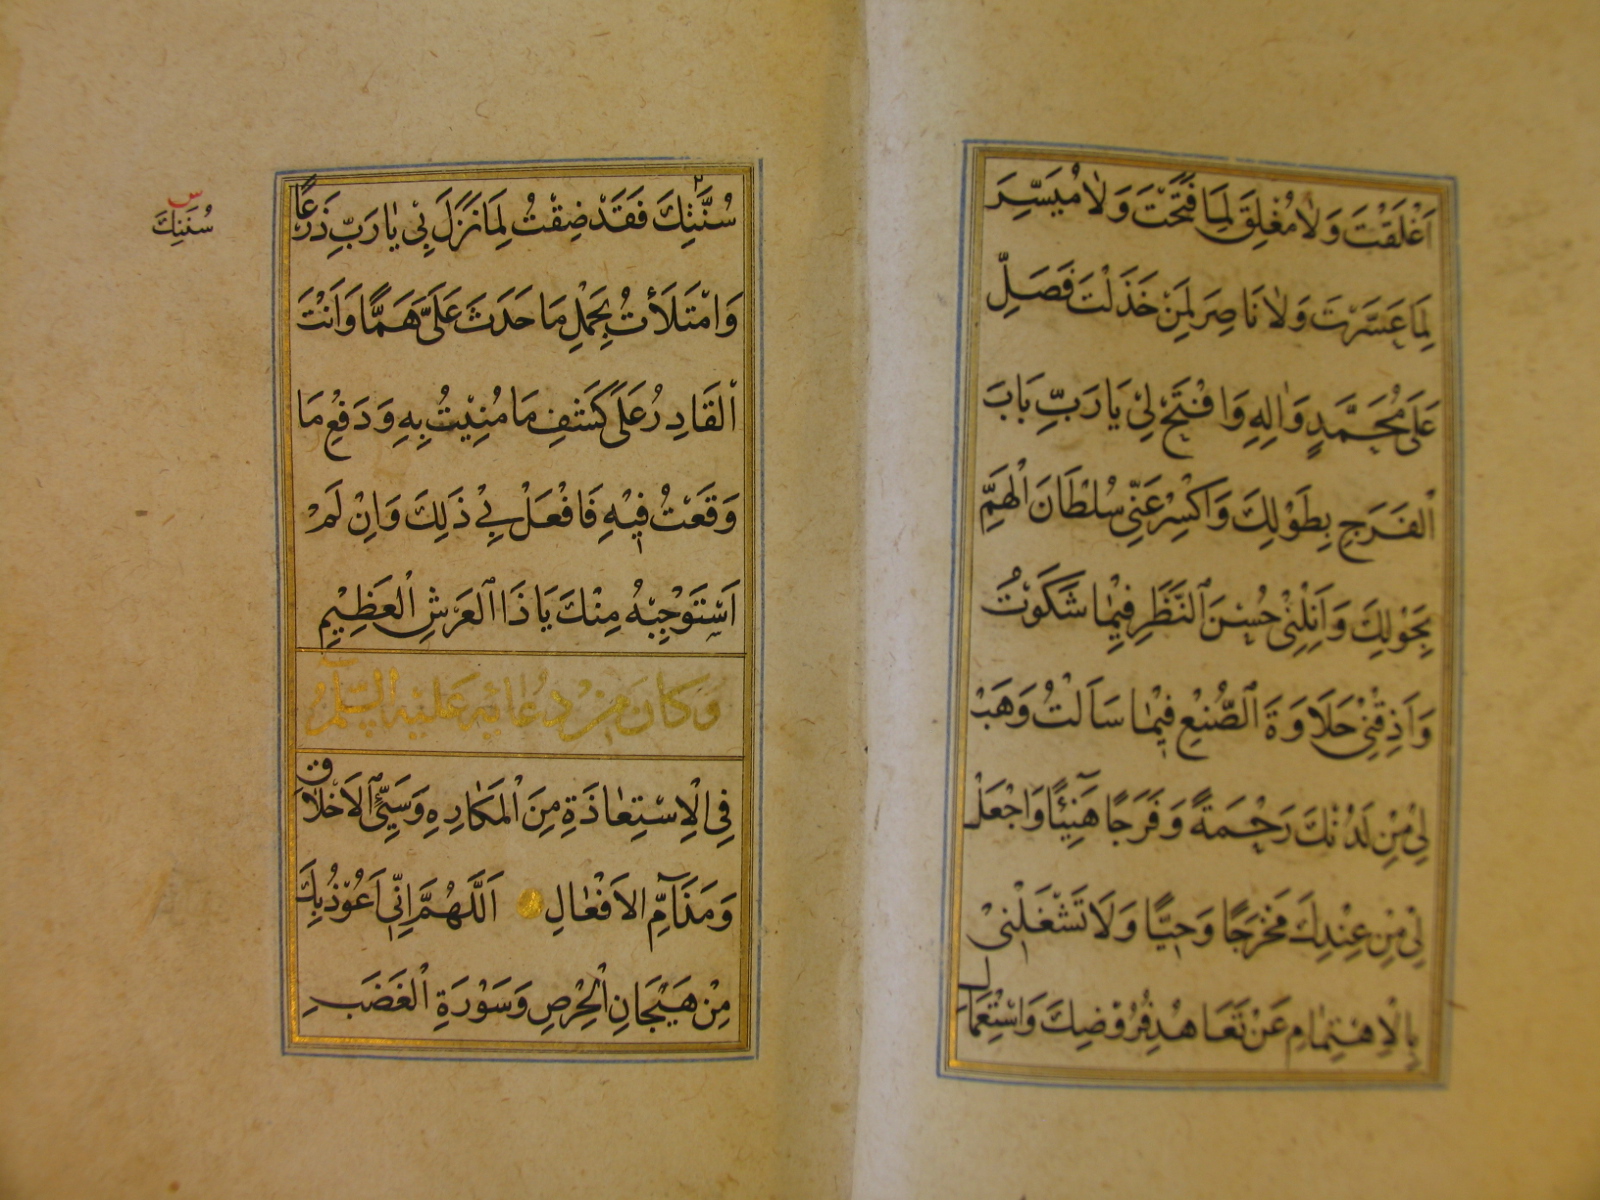 اَغْلَقْتَ وَلَا مُغْلِقَ لِمَا فَتَحْتَ وَلَا مُيَسِّرَ
لِمَا عَسَّرْتَ وَلَا نَاصِرَ لِمَنْ خَذَلْتَ فَصَلِّ
عَلَى مُحَمَّدٍ وَاٰلِهِ وَافْتَحْ لِيْ يَا رَبِّ بَابَ
الْفَرَجِ بِطَوْلِكَ وَاكْسِرْ عَنِّيْ سُلْطَانَ الْهَمِّ
بِحَوْلِكَ وَاَنِلْنِيْ حُسْنَ النَّظَرِ فِيْمَا شَكَوْتُ
وَاَذِقْنِيْ حَلَاوَةَ الصُّنْعِ فِيْمَا سَاَلْتُ وَهَبْ
لِيْ مِنْ لَدُنْكَ رَحْمَةً وَفَرَجًا هَنِيْئًا وَاجْعَلْ
لِيْ مِنْ عِنْدِكَ مَخْرَجًا وَحِيًّا وَلَا تَشْغَلْنِيْ
بِالْاِهْتِمَامِ عَنْ تَعَاهُدِ فُرُوْضِكَ وَاسْتِعْمَالِ
سُنَّتِكَ فَقَدْ ضِقْتُ لِمَا نَزَلَ بِيْ يَا رَبِّ ذَرْعًا
س
سُنَنِكَ
وَامْتَلَأْتُ بِحَمْلِ مَا حَدَثَ عَلَيَّ هَمًّا وَاَنْتَ
الْقَادِرُ عَلَى كَشْفِ مَا مُنِيْتُ بِهِ وَدَفْعِ مَا
وَقَعْتُ فِيْهِ فَافْعَلْ بِيْ ذَلِكَ وَاِنْ لَمْ
اَسْتَوْجِبْهُ مِنْكَ يَا ذَا الْعَرْشِ الْعَظِيْمِ
وَكَانَ مِنْ دُعَائِهِ عَلَيْهِ السَّلَامُ
فِي الْاِسْتِعَاذَةِ مِنَ الْمَكَارِهِ وَسَيِّئِ الْاَخْلَاقِ
وَمَذَآمِّ الْاَفْعَالِ اَللَّهُمَّ اِنِّيْ اَعُوْذُ بِكَ
مِنْ هَيَجَانِ الْحِرْصِ وَسَوْرَةِ الْغَضَبِ